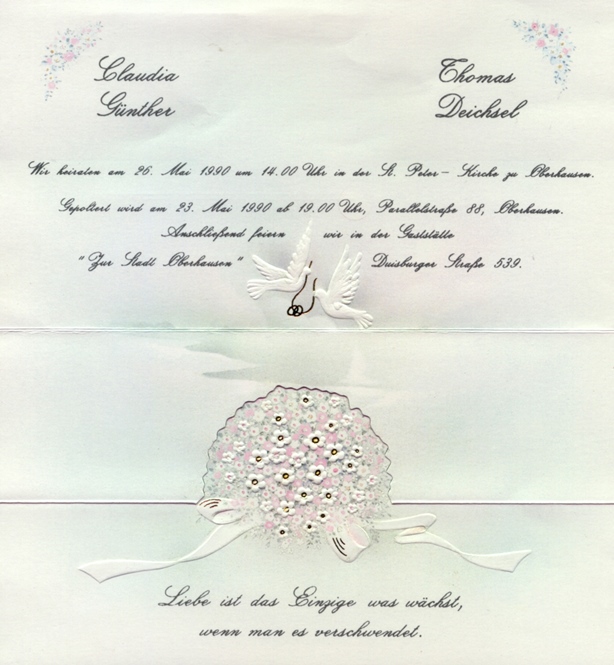 Claudia Thomas
Günther Deichsel
Wir heiraten am 26. Mai 1990 um 14.00 Uhr in der St. Peter - Kirche zu Oberhausen.
Gepoltert wird am 23. Mai 1990 ab 19.00 Uhr, Parallelstraße 88, Oberhausen.
Anschließend feiern wir in der Gaststätte
"Zur Stadt Oberhausen" Duisburger Straße 539.
Liebe ist das Einzige was wächst,
wenn man es verschwendet.